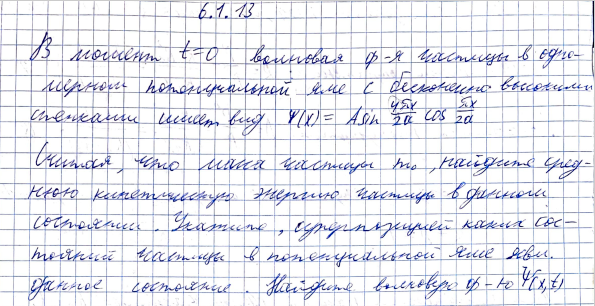 6.1.13
В момент t=0 волновая ф-я частицы в одно-
мерном потенциальной яме с бесконечно высокими
стенками имеет вид Ψ(x) = A sin 4πx/2a cos πx/2a
Считая, что масса частицы m₀, найдите сред-
нюю кинетическую энергию частицы в данном
состоянии. Укажите, суперпозицией каких сос-
тояний частицы в потенциальной яме явл.
данное состояние. Найдите волновую ф-ю Ψ(x,t)